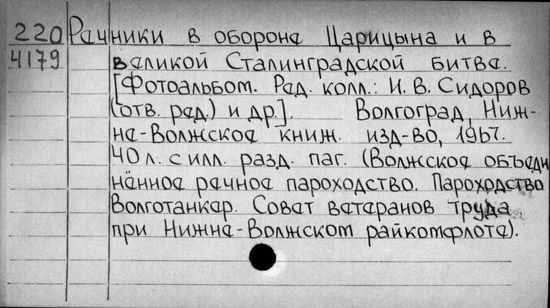 220 Речники в обороне Царицына и в
4179 великой Сталинградской битве.
[Фотоальбом. Ред. колл.: И. В. Сидоров
(отв. ред.) и др.]. Волгоград, Ниж-
не-Волжское книж. изд-во, 1967.
40 л. с илл. разд. паг. (Волжское объеди
нённое речное пароходство. Пароходство
Волготанкер. Совет ветеранов труда
при Нижне-Волжском райкомфлоте).